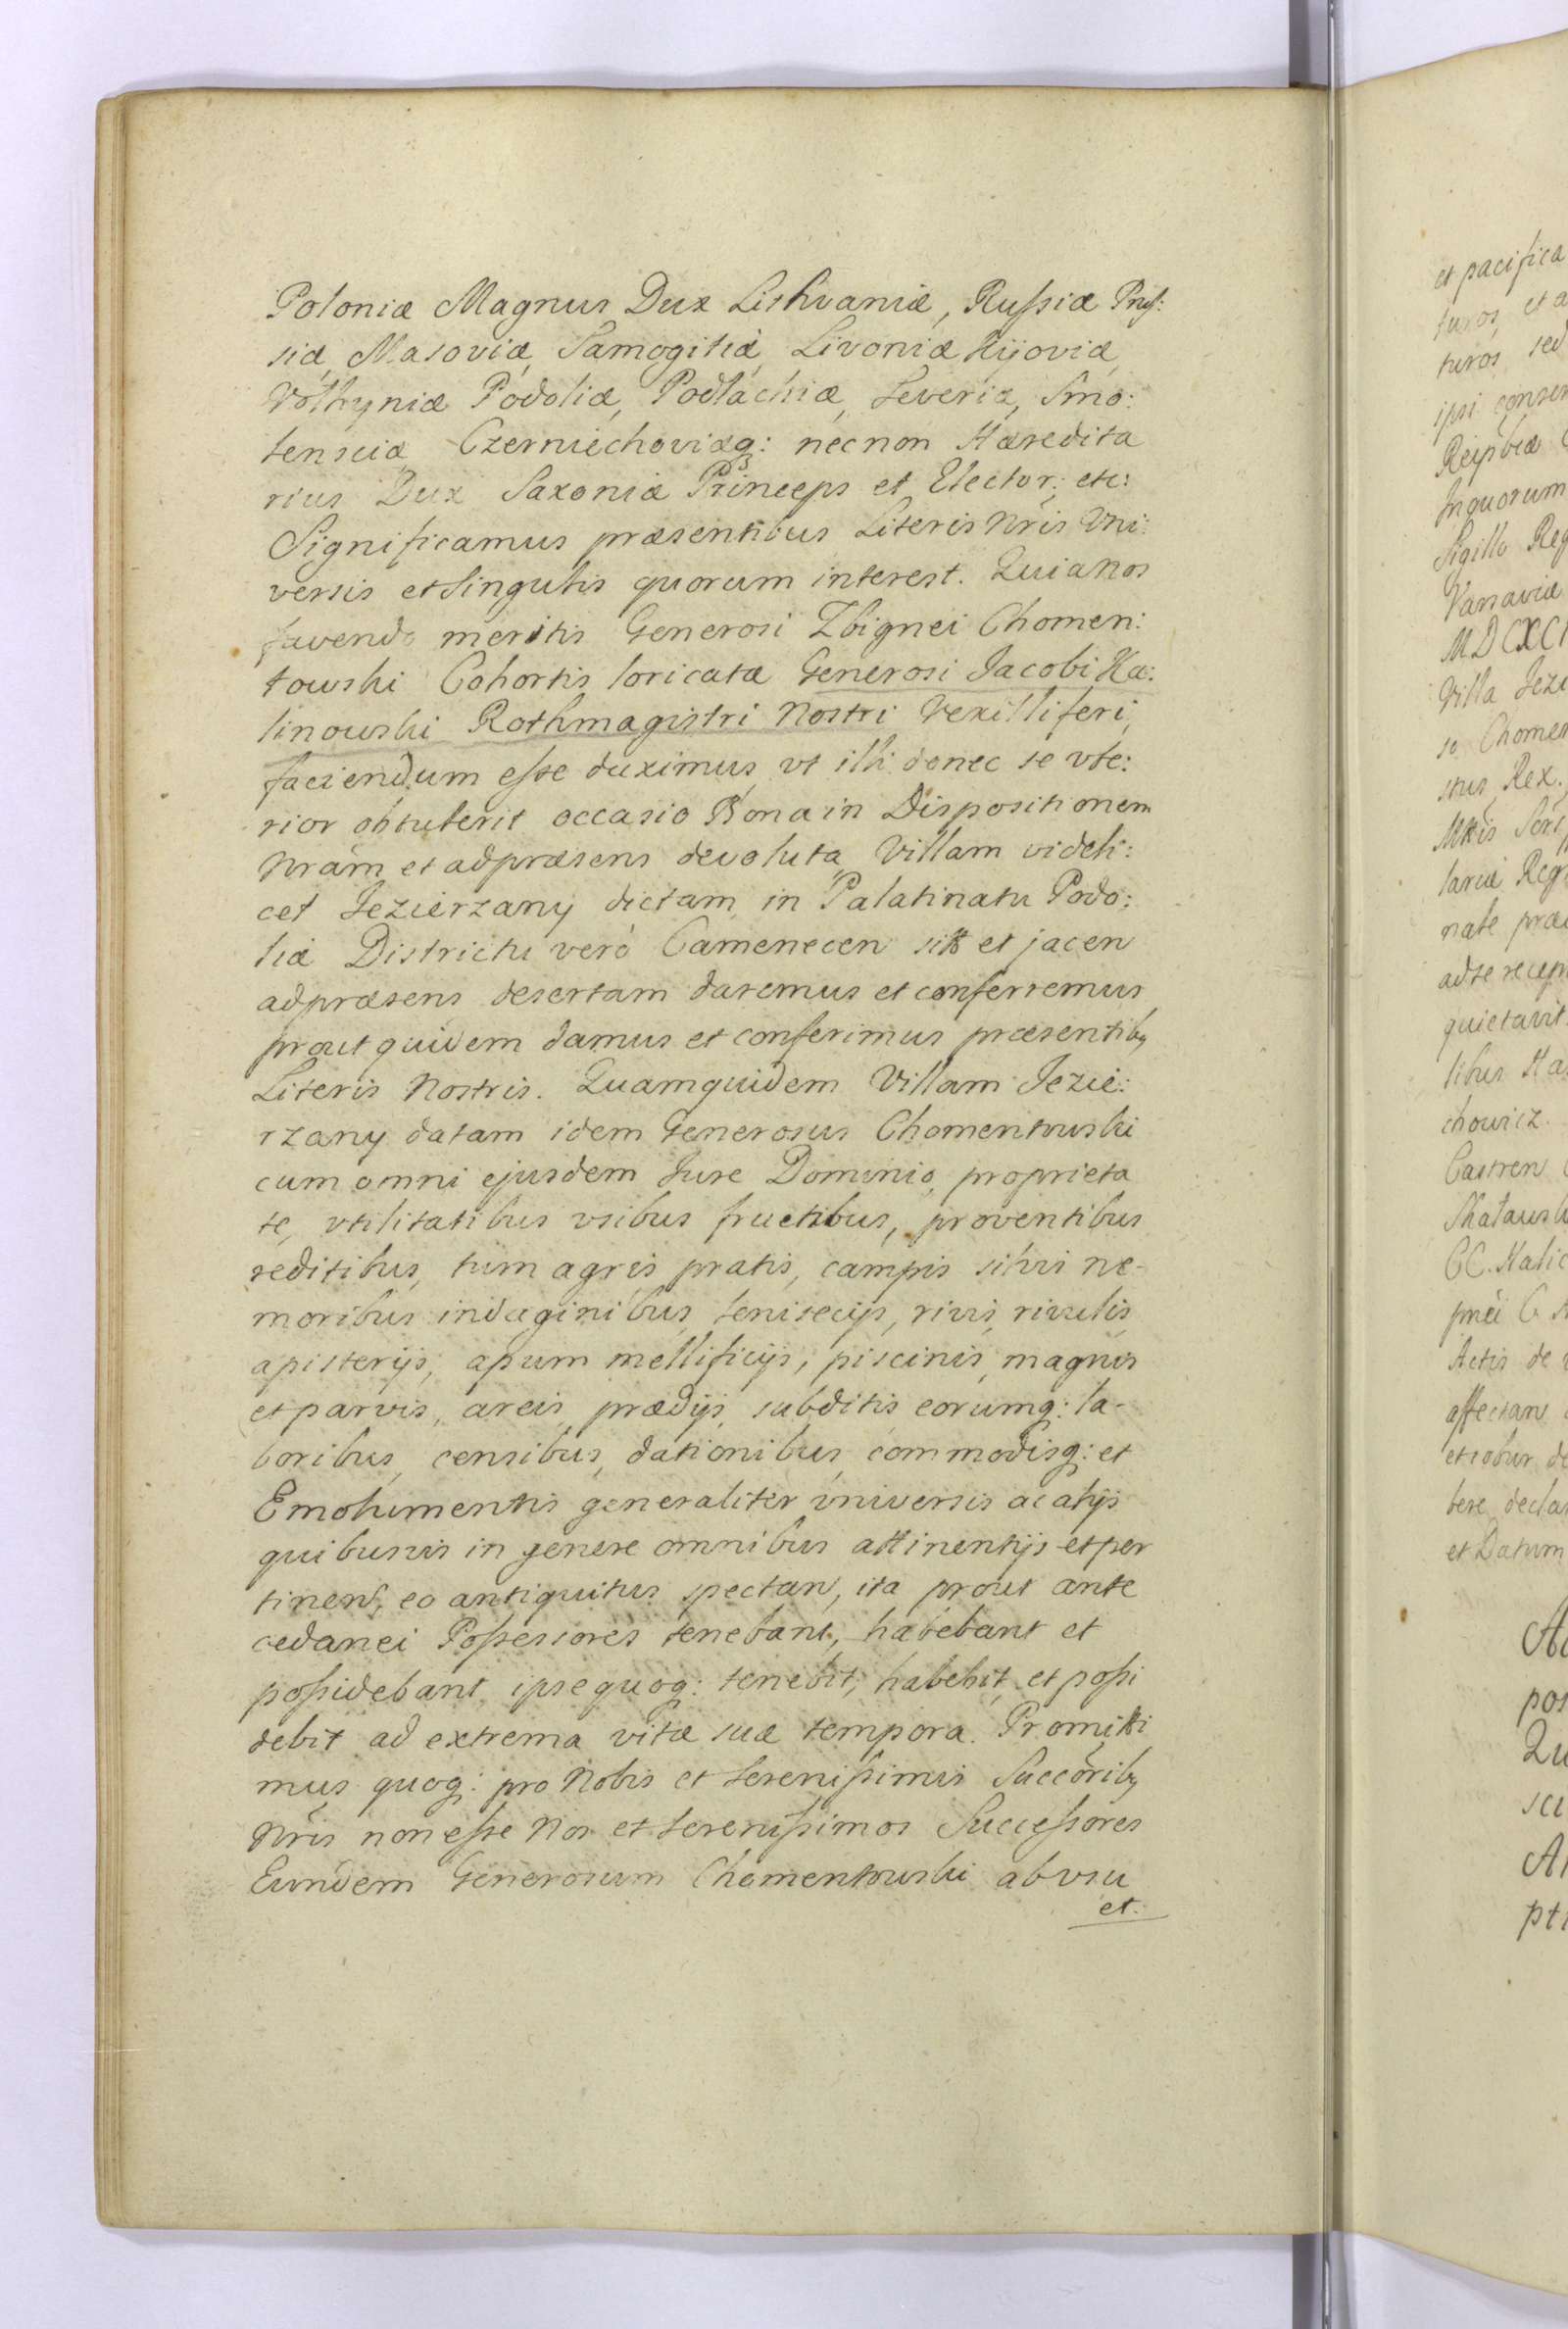 Poloniæ Magnus Dux Lithvaniæ, Rußiæ Pruß:
siæ, Masoviæ, Samogitiæ, Livoniæ Kijoviæ,
Volhyniæ Podoliæ, Podlachiæ, Severiæ, Smo:
lensciæ Czerniechoviæq: necnon Hæredita
rius Dux Saxoniæ Princeps et Elector; etc:
Significamus præsentibus Literis Nris Vni:
versis et Singulis quorum interest. Quia Nos
favendo meritis Generosi Zbignei Chomen:
towski Cohortis loricatæ Generosi Jacobi Ka:
linowski Rothmagistri Nostri Vexilliferi,
faciendum eße duximus, vt illi donec se vbe:
rior obtulerit occasio Bona in Dispositionem
Nram et adpræsens devoluta, Villam videli:
cet Jezierzany dictam, in Palatinatu Podo:
liæ Districtu verò Camenecen sitt et jacen
adpræsens desertam daremus et conferremus,
prout quidem damus et conferimus præsentibq
Literis Nostris. Quamquidem Villam Jezie:
rzany datam idem Generosus Chomentowski
cum omni ejusdem Jure Dominio, proprieta
te, vtilitatibus vsibus fructibus, proventibus
reditibus, tum agris, pratis, campis silvis ne-
moribus indaginibus fenisecijs, rivis, rivulis,
apisterijs, apum mellificijs, piscinis, magnis
et parvis, areis prædijs, subditis eorumq: la-
boribus, censibus, dationibus, commodisq: et
Emolumentis generaliter vniversis ac alijs
quibusvis in genere omnibus attinentijs et per
tinen, eo antiquitus spectan, ita prout ante
cedanei Poßessores tenebant, habebant et
poßidebant, ipse quoq: tenebit, habebit, et poßi
debit ad extrema vitæ suæ tempora. Promitti
mus quoq: pro Nobis et Serenißimis Succoribq
Nris non eße Nos et Serenißimos Succeßores
Eundem Generosum Chomentowski ab vsu
et.
et pacifica
turos, et a
turos, sed
ipsi conser
Reipbcæ
Inquorum
Sigillo Reg
Varsaviæ
MDCXC
Villa Jezi
so Chomen
stus Rex.
Mttis Secr
lariæ Regn
nale præ
ad se recep
quietavit.
libus Ha
chowicz.
Castren
Skatawsk
CC. Halic
pnti C
Actis de
affectans
et robur de
bere decla
et Datum
Ac
pos
Qu
sci
A
pt